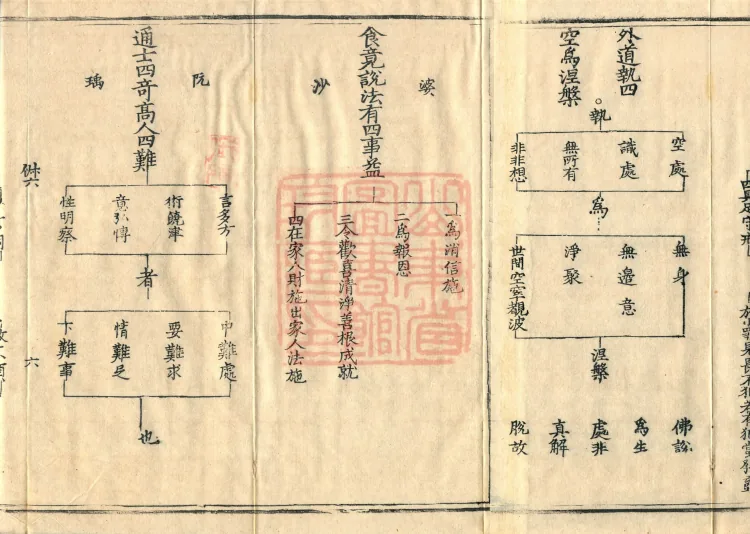 外道執四
空爲涅槃
執
空處
識處
無所有
非非想
爲
無身
無邊意
淨聚
世間空窣覩波
涅槃
佛說
爲生
處非
真解
脫故
食竟說法有四事益
婆
沙
一爲消信施
二爲報恩
三令歡喜清淨善根成就
四在家人財施出家人法施
通士四奇高人四難
阮
瑀
言多方
術饒津
意弘博
性明察
者
中難處
要難求
情難足
下難事
也
六